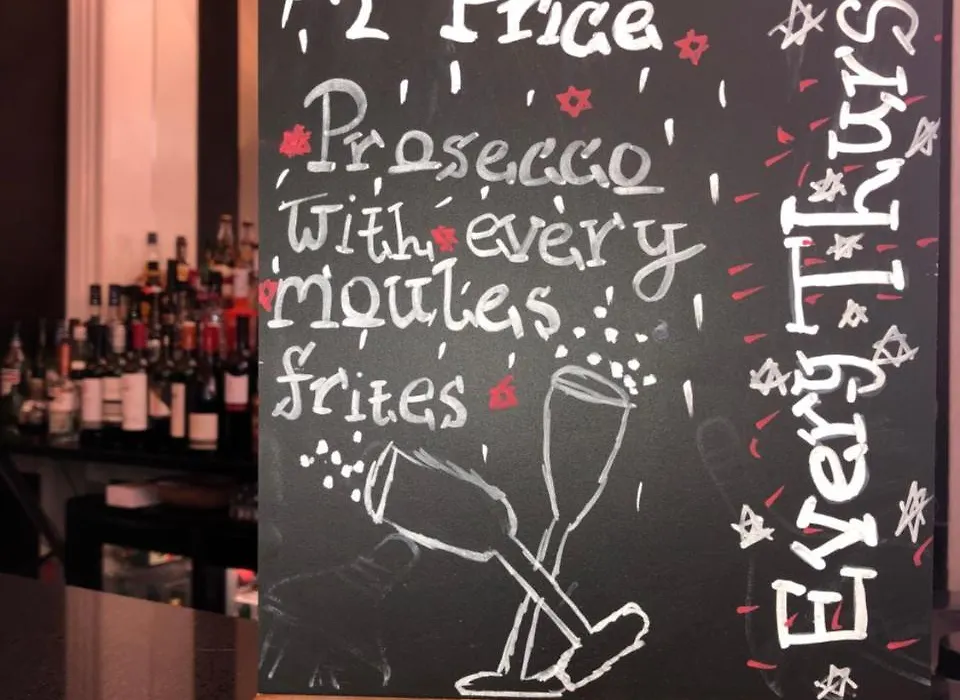 ½ Price
Prosecco
with every
moules
frites
Every Thurs